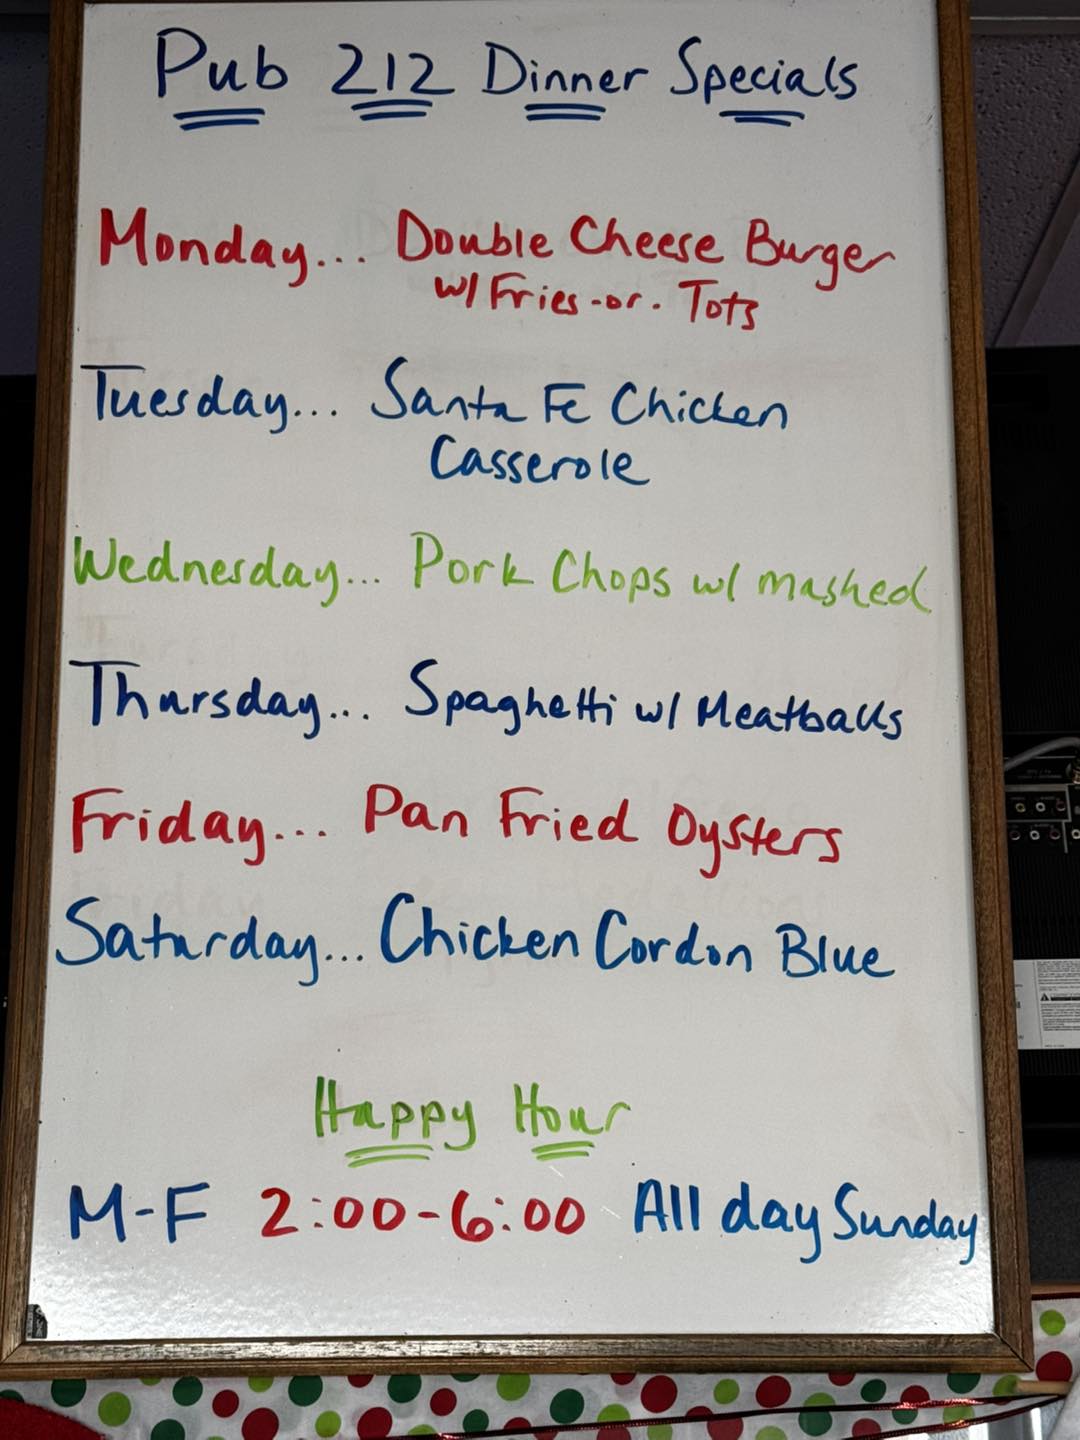 Pub 212 Dinner Specials
Monday... Double Cheese Burger
w/ Fries -or- Tots
Tuesday... Santa Fe Chicken
Casserole
Wednesday... Pork Chops w/ mashed
Thursday... Spaghetti w/ Meatballs
Friday... Pan Fried Oysters
Saturday... Chicken Cordon Blue
Happy Hour
M-F 2:00-6:00 All day Sunday